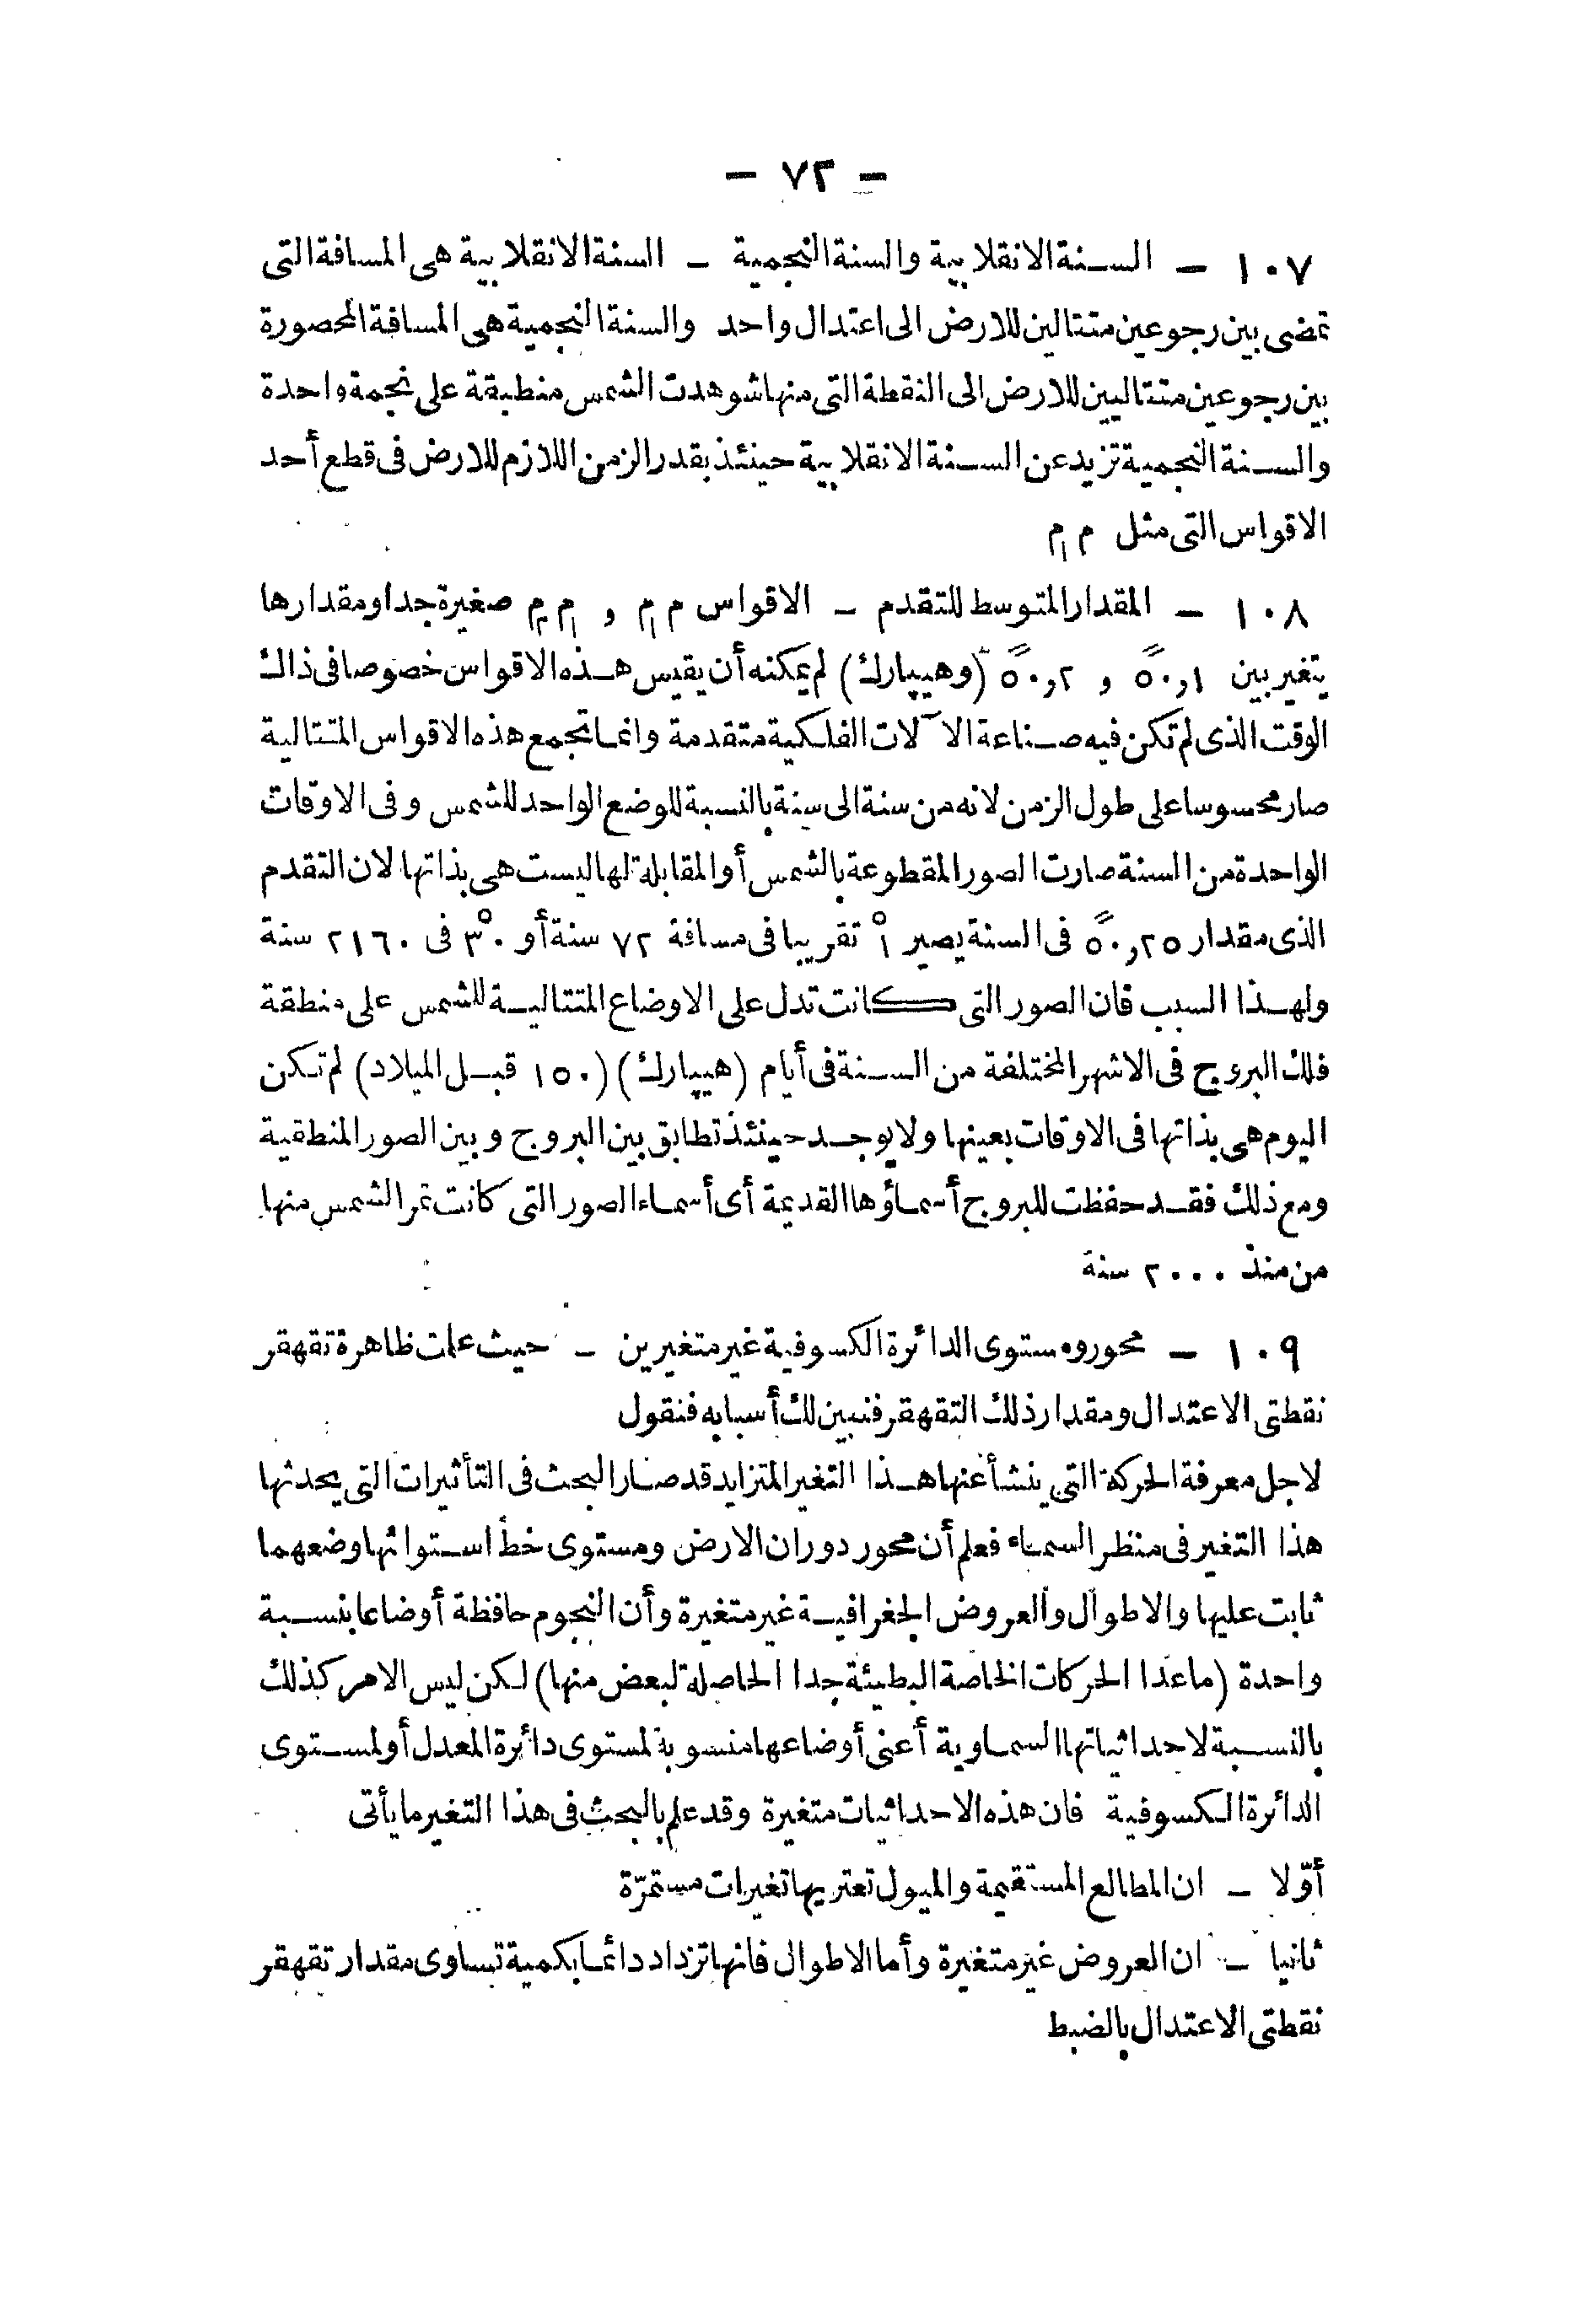 — ٧٣ —
١٠٧ — السنة الانقلابية والسنة النجمية — السنة الانقلابية هى المسافة التى
تمضى بين رجوعين متتالين للارض الى اعتدال واحد والسنة النجمية هى المسافة المحصورة
بين رجوعين متتاليين للارض الى النقطة التى منها شوهدت الشمس منطبقة على نجمة واحدة
والسنة النجمية تزيد عن السنة الانقلابية حينئذ بقدر الزمن اللازم للارض فى قطع أحد
الاقواس التى مثل م م١
١٠٨ — المقدار المتوسط للتقدم — الاقواس م م١ و م١ م٢ صغيرة جدا ومقدارها
يتغير بين ٥٠,١ً و ٥٠,٢ً (وهيپارك) لم يمكنه أن يقيس هذه الاقواس خصوصا فى ذاك
الوقت الذى لم تكن فيه صناعة الآلات الفلكية متقدمة وانما تجمع هذه الاقواس المتتالية
صار محسوسا على طول الزمن لانه من سنة الى سنة بالنسبة للوضع الواحد للشمس وفى الاوقات
الواحدة من السنة صارت الصور المقطوعة بالشمس أو المقابلة لها ليست هى بذاتها لان التقدم
الذى مقدار ٥٠,٢٥ً فى السنة يصير ١° تقريبا فى مسافة ٧٢ سنة أو ٣٠° فى ٢١٦٠ سنة
ولهذا السبب فان الصور التى كانت تدل على الاوضاع المتتالية للشمس على منطقة
فلك البروج فى الاشهر المختلفة من السنة فى أيام (هيپارك) (١٥٠ قبل الميلاد) لم تكن
اليوم هى بذاتها فى الاوقات بعينها ولا يوجد حينئذ تطابق بين البروج وبين الصور المنطقية
ومع ذلك فقد حفظت للبروج أسماؤها القديمة أى أسماء الصور التى كانت تمر الشمس منها
من منذ ٢٠٠٠ سنة
١٠٩ — محور ومستوى الدائرة الكسوفية غير متغيرين — حيث علمت ظاهرة تقهقر
نقطتى الاعتدال ومقدار ذلك التقهقر فنبين لك أسبابه فنقول
لاجل معرفة الحركة التى ينشأ عنها هذا التغير المتزايد قد صار البحث فى التأثيرات التى يحدثها
هذا التغير فى منظر السماء فعلم أن محور دوران الارض ومستوى خط استوائها وضعهما
ثابت عليها والاطوال والعروض الجغرافية غير متغيرة وأن النجوم حافظة أوضاعا بنسبة
واحدة (ماعدا الحركات الخاصة البطيئة جدا الحاصلة لبعض منها) لكن ليس الامر كذلك
بالنسبة لاحداثياتها السماوية أعنى أوضاعها منسوبة لمستوى دائرة المعدل أو لمستوى
الدائرة الكسوفية فان هذه الاحداثيات متغيرة وقد علم بالبحث فى هذا التغير ما يأتى
أوّلا — ان المطالع المستقيمة والميول تعتريها تغيرات مستمرّة
ثانيا — ان العروض غير متغيرة وأما الاطوال فانها تزداد دائما بكمية تساوى مقدار تقهقر
نقطتى الاعتدال بالضبط